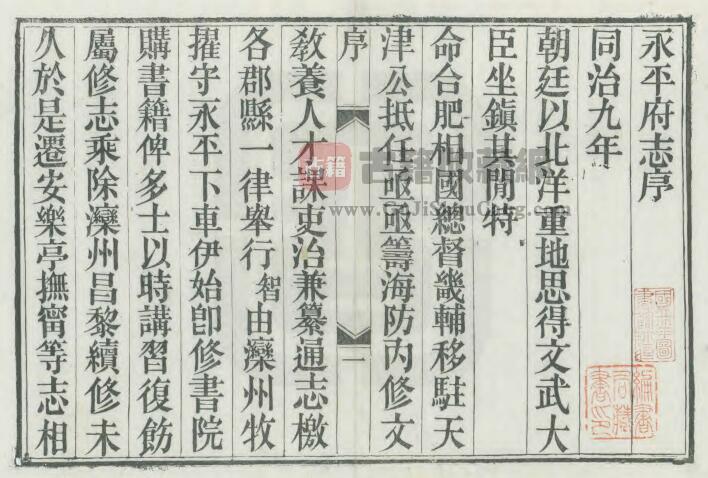 永平府志序
同治九年
朝廷以北洋重地思得文武大
臣坐鎮其閒特
命合肥相國總督畿輔移駐天
津公抵任亟亟籌海防內修文
序
一
教養人才課吏治兼纂通志檄
各郡縣一律舉行智由灤州牧
擢守永平下車伊始卽修書院
購書籍俾多士以時講習復飭
屬修志乘除灤州昌黎續修未
久於是遷安樂亭撫甯等志相
古籍
古籍收藏網
www.GuJiShouCang.com